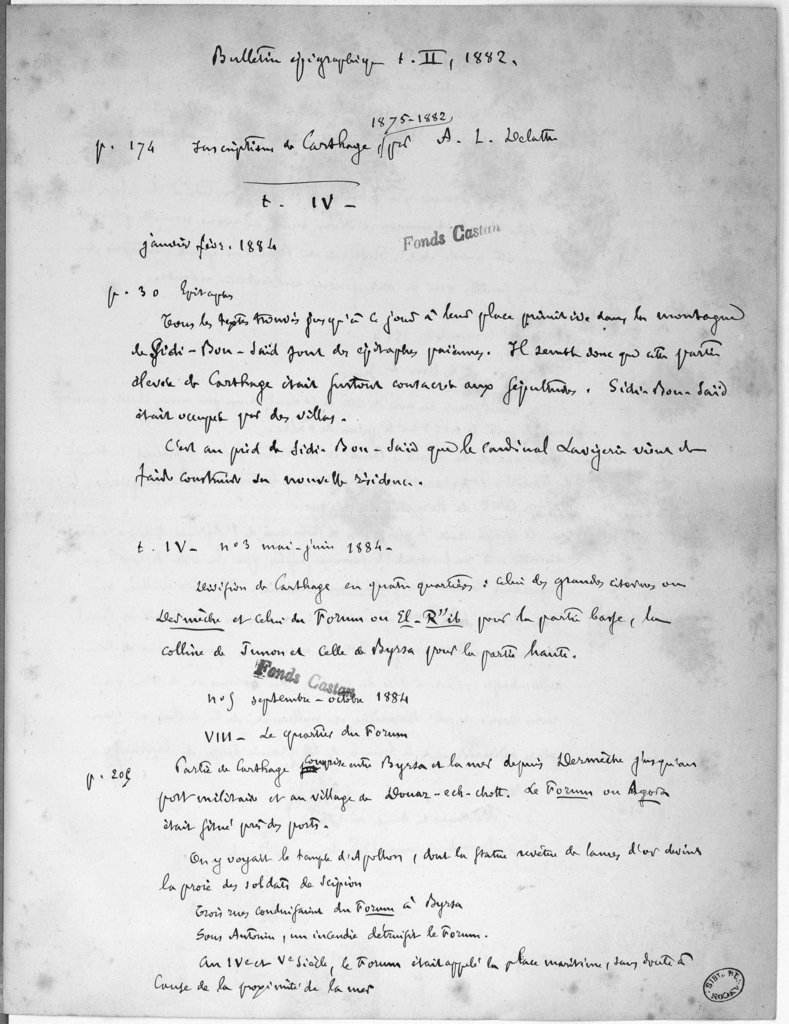 Bulletin épigraphique t. II, 1882.
1875-1882
p. 174 Inscriptions de Carthage, par A. L. Delattre
t. IV -
janvier févr. 1884
Fonds Castan
p. 30 Epitaphes
Tous les textes trouvés jusqu'à ce jour à leur place primitive dans la montagne
de Sidi-Bou-Saïd sont des épitaphes païennes. Il semble donc que cette partie
élevée de Carthage était surtout consacrée aux sépultures. Sidi-Bou-Saïd
était occupé par des villas.
C'est au pied de Sidi-Bou-Saïd que le cardinal Lavigerie vient de
faire construire sa nouvelle résidence.
t. IV - n° 3 mai-juin 1884 -
Division de Carthage en quatre quartiers : celui des grandes citernes ou
Dermèche et celui du Forum ou El-R''ib pour la partie basse, la
colline de Junon et celle de Byrsa pour la partie haute.
Fonds Castan
n° 5 septembre-octobre 1884
VIII - Le quartier du Forum
p. 205 Partie de Carthage comprise entre Byrsa et la mer depuis Dermèche jusqu'au
port militaire et au village de Douar-ech-chott. Le Forum ou Agora
était situé près des ports.
On y voyait le temple d'Apollon, dont la statue revêtue de lames d'or devint
la proie des soldats de Scipion
Trois rues conduisaient du Forum à Byrsa
Sous Antonin, un incendie détruisit le Forum.
Au IVe et Ve siècle, le Forum était appelé la place maritime, sans doute à
cause de la proximité de la mer
BIBL. BESANÇON